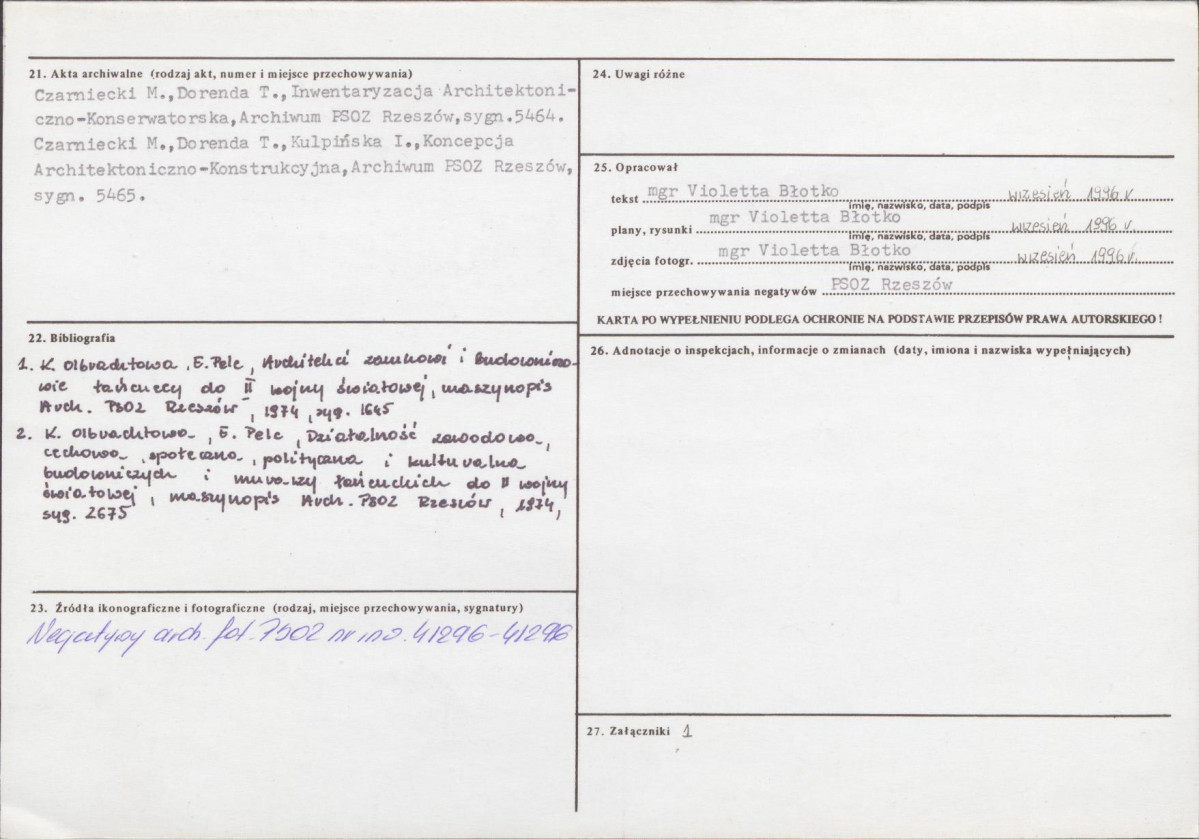 21. Akta archiwalne (rodzaj akt, numer i miejsce przechowywania)
Czarniecki M.,Dorenda T.,Inwentaryzacja Architektoni-
czno-Konserwatorska,Archiwum PSOZ Rzeszów,sygn.5464.
Czarniecki M.,Dorenda T.,Kulpińska I.,Koncepcja
Architektoniczno-Konstrukcyjna,Archiwum PSOZ Rzeszów,
sygn. 5465.
22. Bibliografia
1. K. Olbrachtowa, E. Pelc, Architekci zamkowi i budowniczo-
wie łańcuccy do II wojny światowej, maszynopis
Arch. PSOZ Rzeszów, 1974, syg. 1645
2. K. Olbrachtowa, E. Pelc, Działalność zawodowa,
cechowa, społeczna, polityczna i kulturalna
budowniczych i murarzy łańcuckich do II wojny
światowej, maszynopis Arch. PSOZ Rzeszów, 1974,
syg. 2675
23. Źródła ikonograficzne i fotograficzne (rodzaj, miejsce przechowywania, sygnatury)
Negatywy arch. fot. PSOZ nr inw. 41296-41296
24. Uwagi różne
25. Opracował
tekst mgr Violetta Błotko wrzesień 1996 r.
imię, nazwisko, data, podpis
plany, rysunki mgr Violetta Błotko wrzesień 1996 r.
imię, nazwisko, data, podpis
zdjęcia fotogr. mgr Violetta Błotko wrzesień 1996 r.
imię, nazwisko, data, podpis
miejsce przechowywania negatywów PSOZ Rzeszów
KARTA PO WYPEŁNIENIU PODLEGA OCHRONIE NA PODSTAWIE PRZEPISÓW PRAWA AUTORSKIEGO !
26. Adnotacje o inspekcjach, informacje o zmianach (daty, imiona i nazwiska wypełniających)
27. Załączniki 1